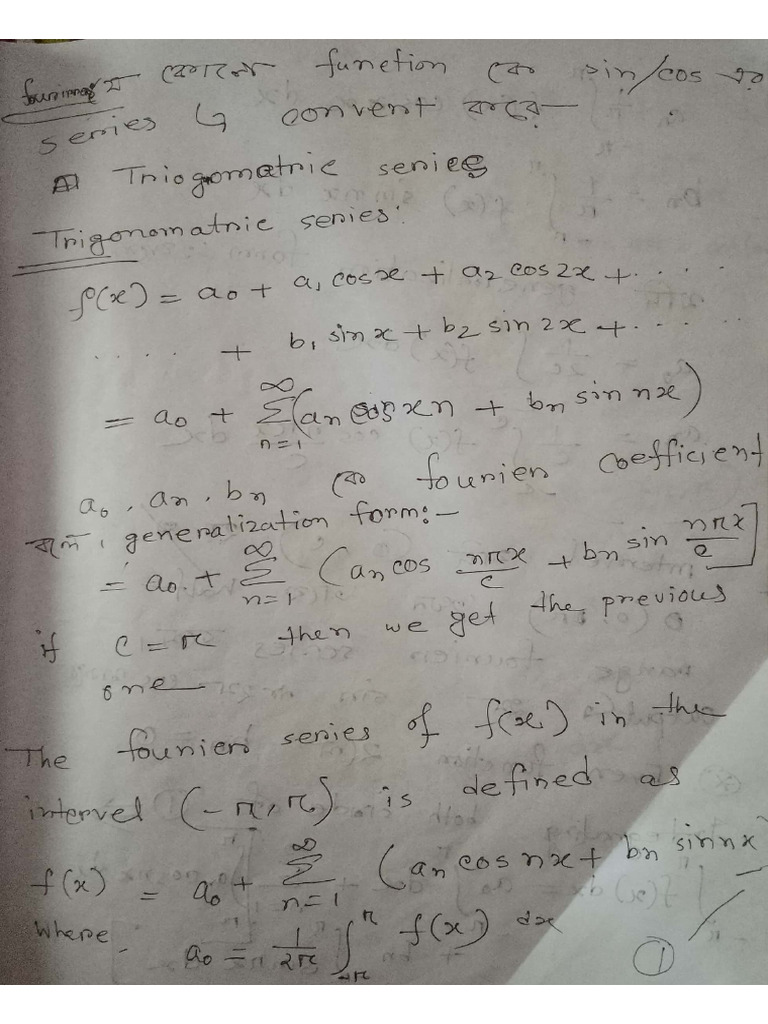 যে কোনো function কে sin/cos এর
series এ convert করে
Triogometric series
Trigonomatric series:
f(x) = a₀ + a₁ cosx + a₂ cos2x + ....
.... + b₁ sinx + b₂ sin2x + ....
= a₀ + ∑_{n=1}^{∞} (aₙ cos xn + bₙ sin nx)
a₀, aₙ, bₙ কে fourier coefficient
বলে। generalization form:-
= a₀ + ∑_{n=1}^{∞} (aₙ cos nπx/c + bₙ sin nπx/c]
if c = π then we get the previous
one
The fourier series of f(x) in the
intervel (-π, π) is defined as
f(x) = a₀ + ∑_{n=1}^{∞} (aₙ cos nx + bₙ sinnx
where, a₀ = 1/2π ∫_{-π}^{π} f(x) dx
①